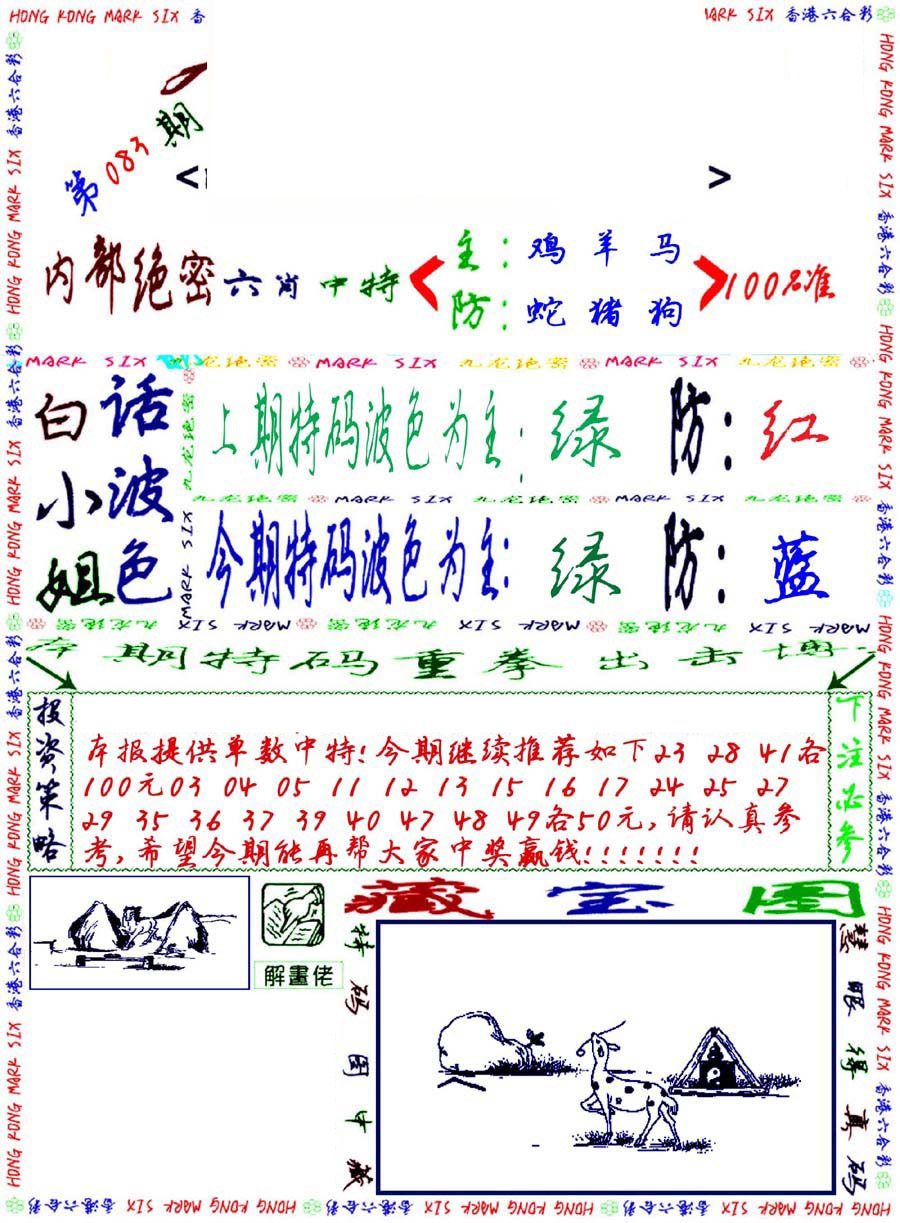 HONG KONG MARK SIX 香
MARK SIX 香港六合彩
第083期
< >
内部绝密 六肖中特 < 主：鸡 羊 马 > 100%准
防：蛇 猪 狗
MARK SIX 九龙绝密 MARK SIX 九龙绝密 MARK SIX 九龙绝密
白话
小波
姐色
上期特码波色为主：绿 防：红
九龙绝密 MARK SIX 九龙绝密 MARK SIX 九龙绝密
今期特码波色为主：绿 防：蓝
九龙绝密 MARK SIX 九龙绝密 MARK SIX 九龙绝密 MARK SIX
本期特码重拳出击博
投资策略
本报提供单数中特!今期继续推荐如下23 28 41各
100元03 04 05 11 12 13 15 16 17 24 25 27
29 35 36 37 39 40 47 48 49各50元,请认真参
考,希望今期能再帮大家中奖赢钱!!!!!!!
下注必参
解畫佬
藏宝图
特码图中藏
慧眼得真码
HONG KONG MARK SIX 香港六合彩 HONG KONG MARK SIX 香港六合彩 HONG KONG MARK SIX 香港六合彩